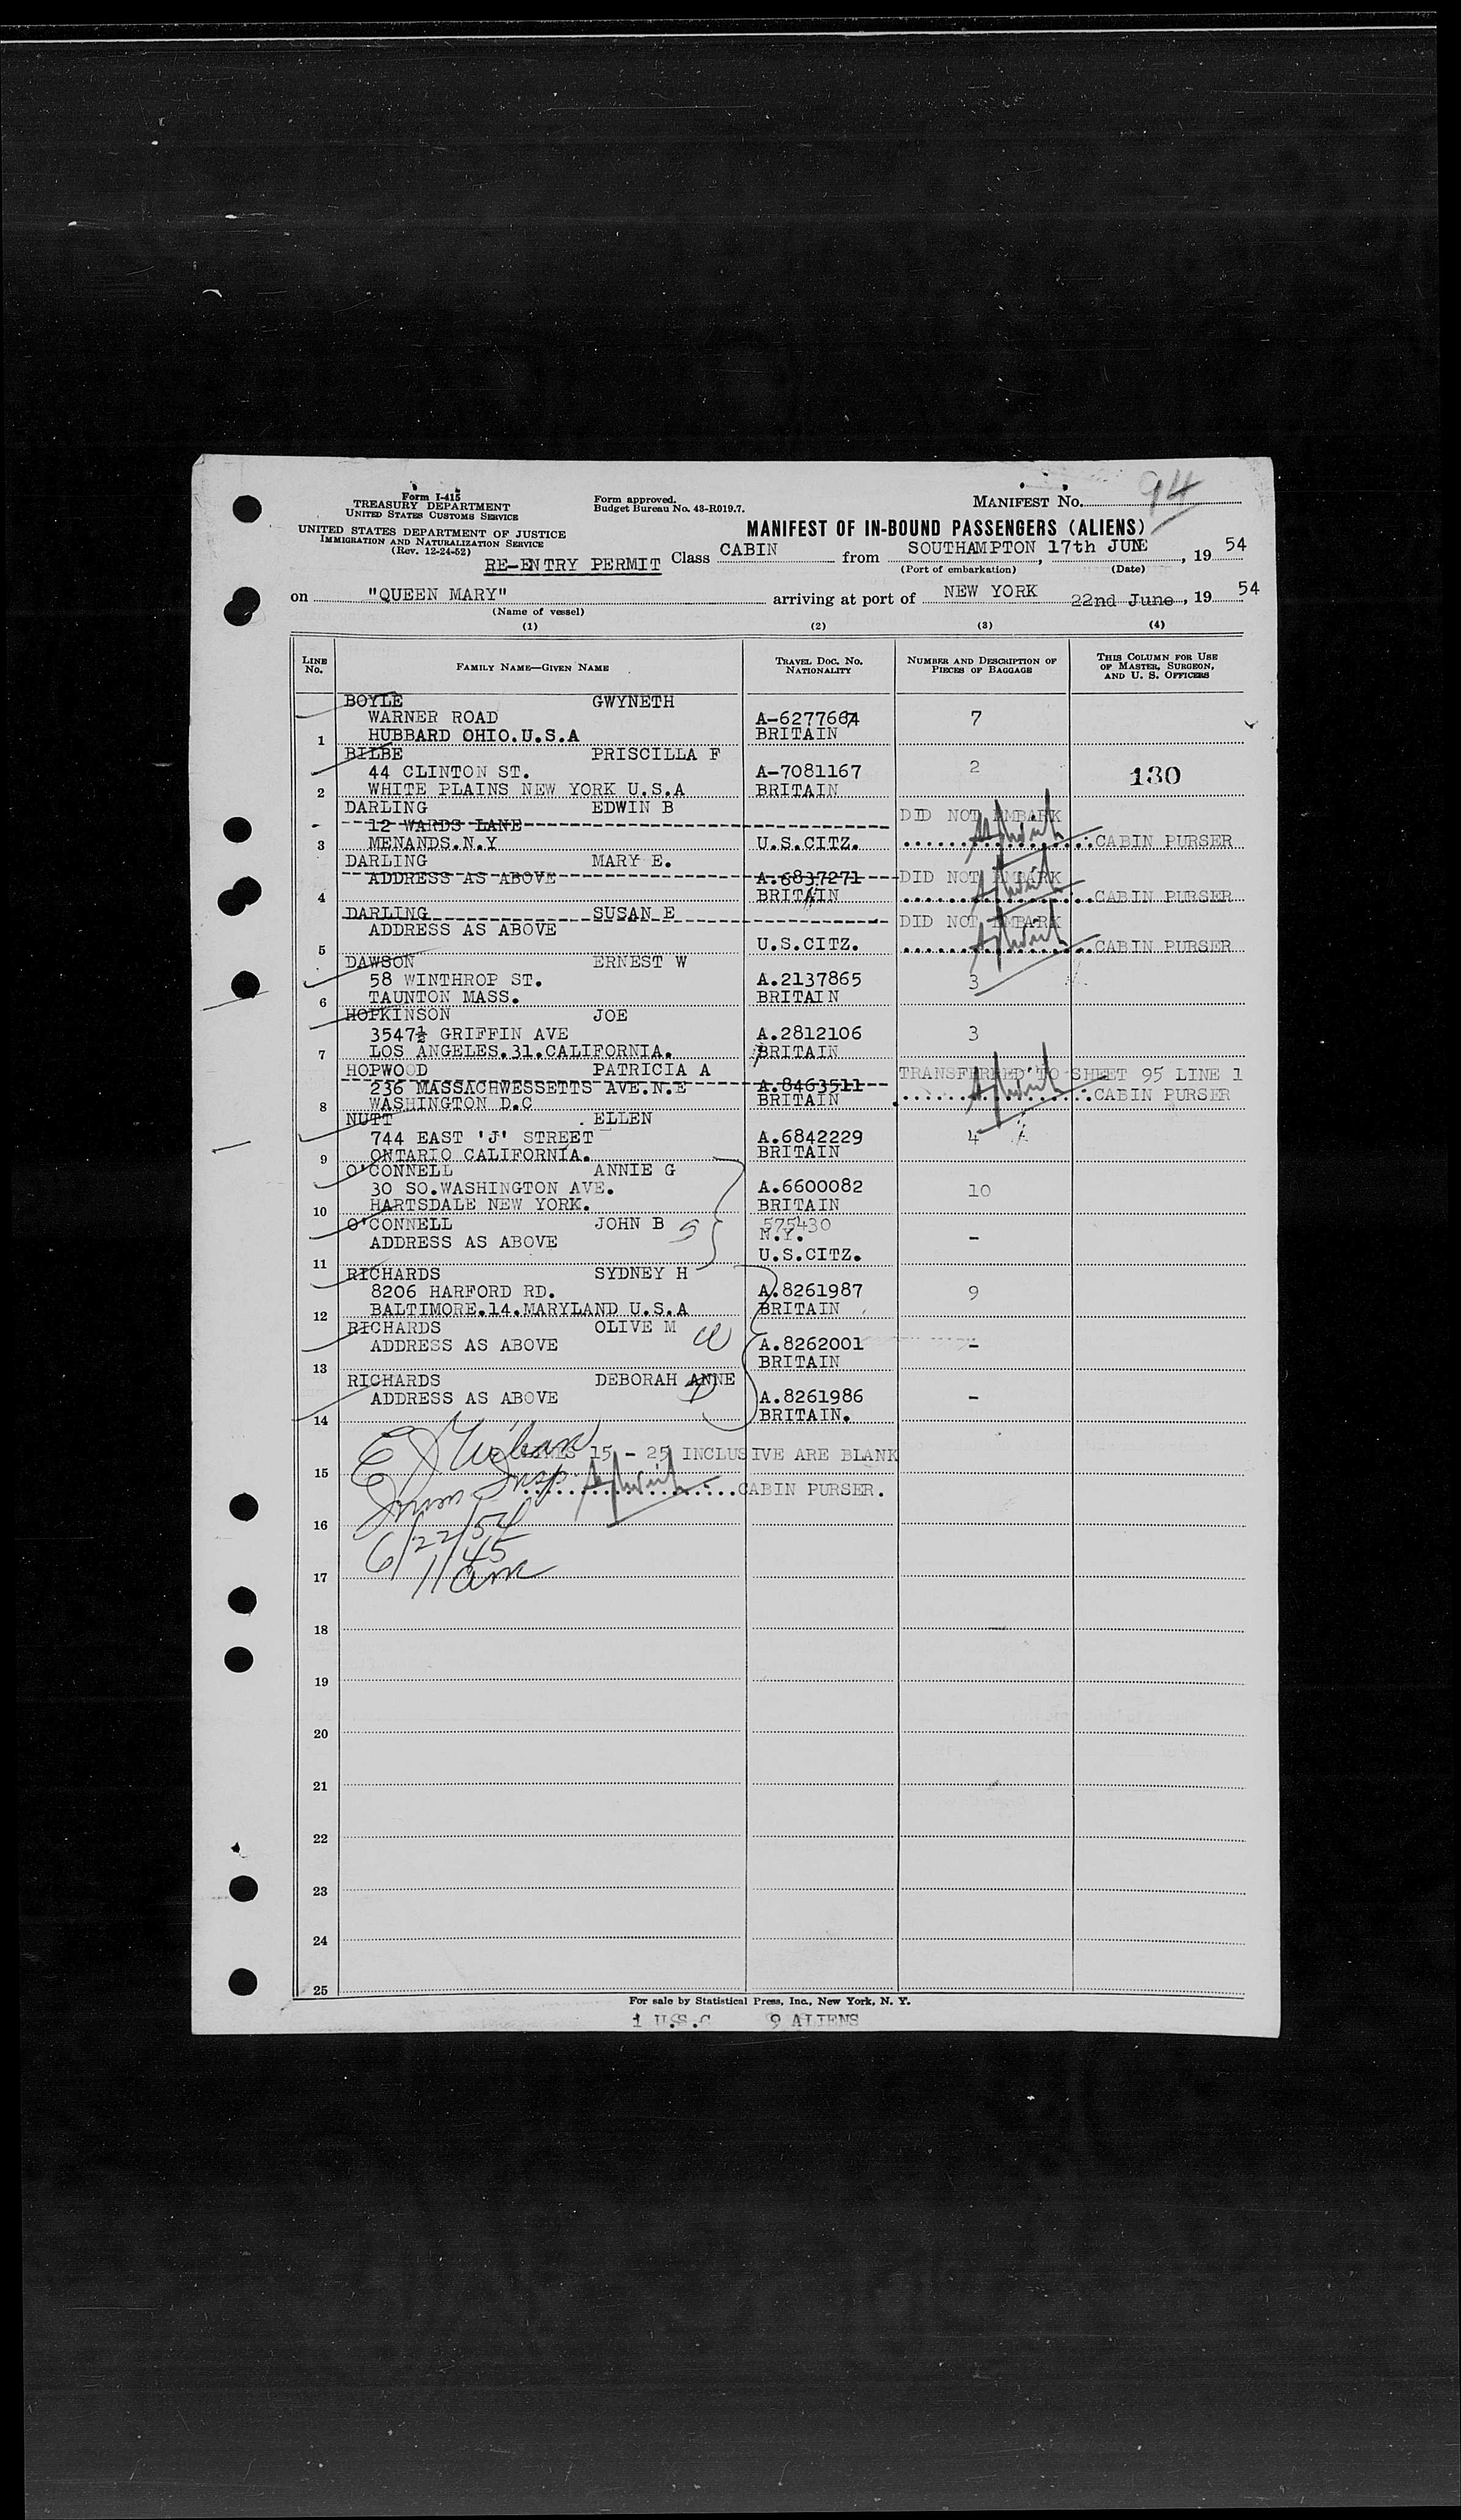 94
Form I-415
TREASURY DEPARTMENT
UNITED STATES CUSTOMS SERVICE
Form approved.
Budget Bureau No. 43-R019.7.
MANIFEST No.
UNITED STATES DEPARTMENT OF JUSTICE
IMMIGRATION AND NATURALIZATION SERVICE
(Rev. 12-24-52)
MANIFEST OF IN-BOUND PASSENGERS (ALIENS)
RE-ENTRY PERMIT Class CABIN from SOUTHAMPTON 17th JUNE, 19 54
(Port of embarkation) (Date)
on "QUEEN MARY" arriving at port of NEW YORK 22nd June, 19 54
(Name of vessel)
(1) (2) (3) (4)
LINE No. FAMILY NAME—GIVEN NAME TRAVEL DOC. No. NATIONALITY NUMBER AND DESCRIPTION OF PIECES OF BAGGAGE THIS COLUMN FOR USE OF MASTER, SURGEON, AND U. S. OFFICERS
BOYLE GWYNETH
WARNER ROAD A-6277664 7
1 HUBBARD OHIO.U.S.A BRITAIN
BILBE PRISCILLA F
44 CLINTON ST. A-7081167 2 130
2 WHITE PLAINS NEW YORK U.S.A BRITAIN
DARLING EDWIN B DID NOT EMBARK
12 WARDS LANE
3 MENANDS.N.Y U.S.CITZ. CABIN PURSER
DARLING MARY E.
ADDRESS AS ABOVE A.6837271 DID NOT EMBARK
4 BRITAIN CABIN PURSER
DARLING SUSAN E DID NOT EMBARK
ADDRESS AS ABOVE
5 U.S.CITZ. CABIN PURSER
DAWSON ERNEST W
58 WINTHROP ST. A.2137865 3
6 TAUNTON MASS. BRITAIN
HOPKINSON JOE
3547½ GRIFFIN AVE A.2812106 3
7 LOS ANGELES.31.CALIFORNIA. BRITAIN
HOPWOOD PATRICIA A TRANSFERRED TO SHEET 95 LINE 1
236 MASSACHWESSETTS AVE.N.E A.8463511
8 WASHINGTON D.C BRITAIN CABIN PURSER
NUTT ELLEN
744 EAST 'J' STREET A.6842229 4
9 ONTARIO CALIFORNIA. BRITAIN
O'CONNELL ANNIE G
30 SO.WASHINGTON AVE. A.6600082 10
10 HARTSDALE NEW YORK. BRITAIN
O'CONNELL JOHN B S 575430
ADDRESS AS ABOVE N.Y. -
11 U.S.CITZ.
RICHARDS SYDNEY H
8206 HARFORD RD. A.8261987 9
12 BALTIMORE.14.MARYLAND U.S.A BRITAIN
RICHARDS OLIVE M
ADDRESS AS ABOVE A.8262001 -
13 BRITAIN
RICHARDS DEBORAH ANNE
ADDRESS AS ABOVE A.8261986 -
14 BRITAIN.
LINES 15 - 25 INCLUSIVE ARE BLANK
15 Insp.
CABIN PURSER.
16 6/22/54
17 11 45 am
18
19
20
21
22
23
24
25
For sale by Statistical Press, Inc., New York, N. Y.
1 U.S.C 9 ALIENS